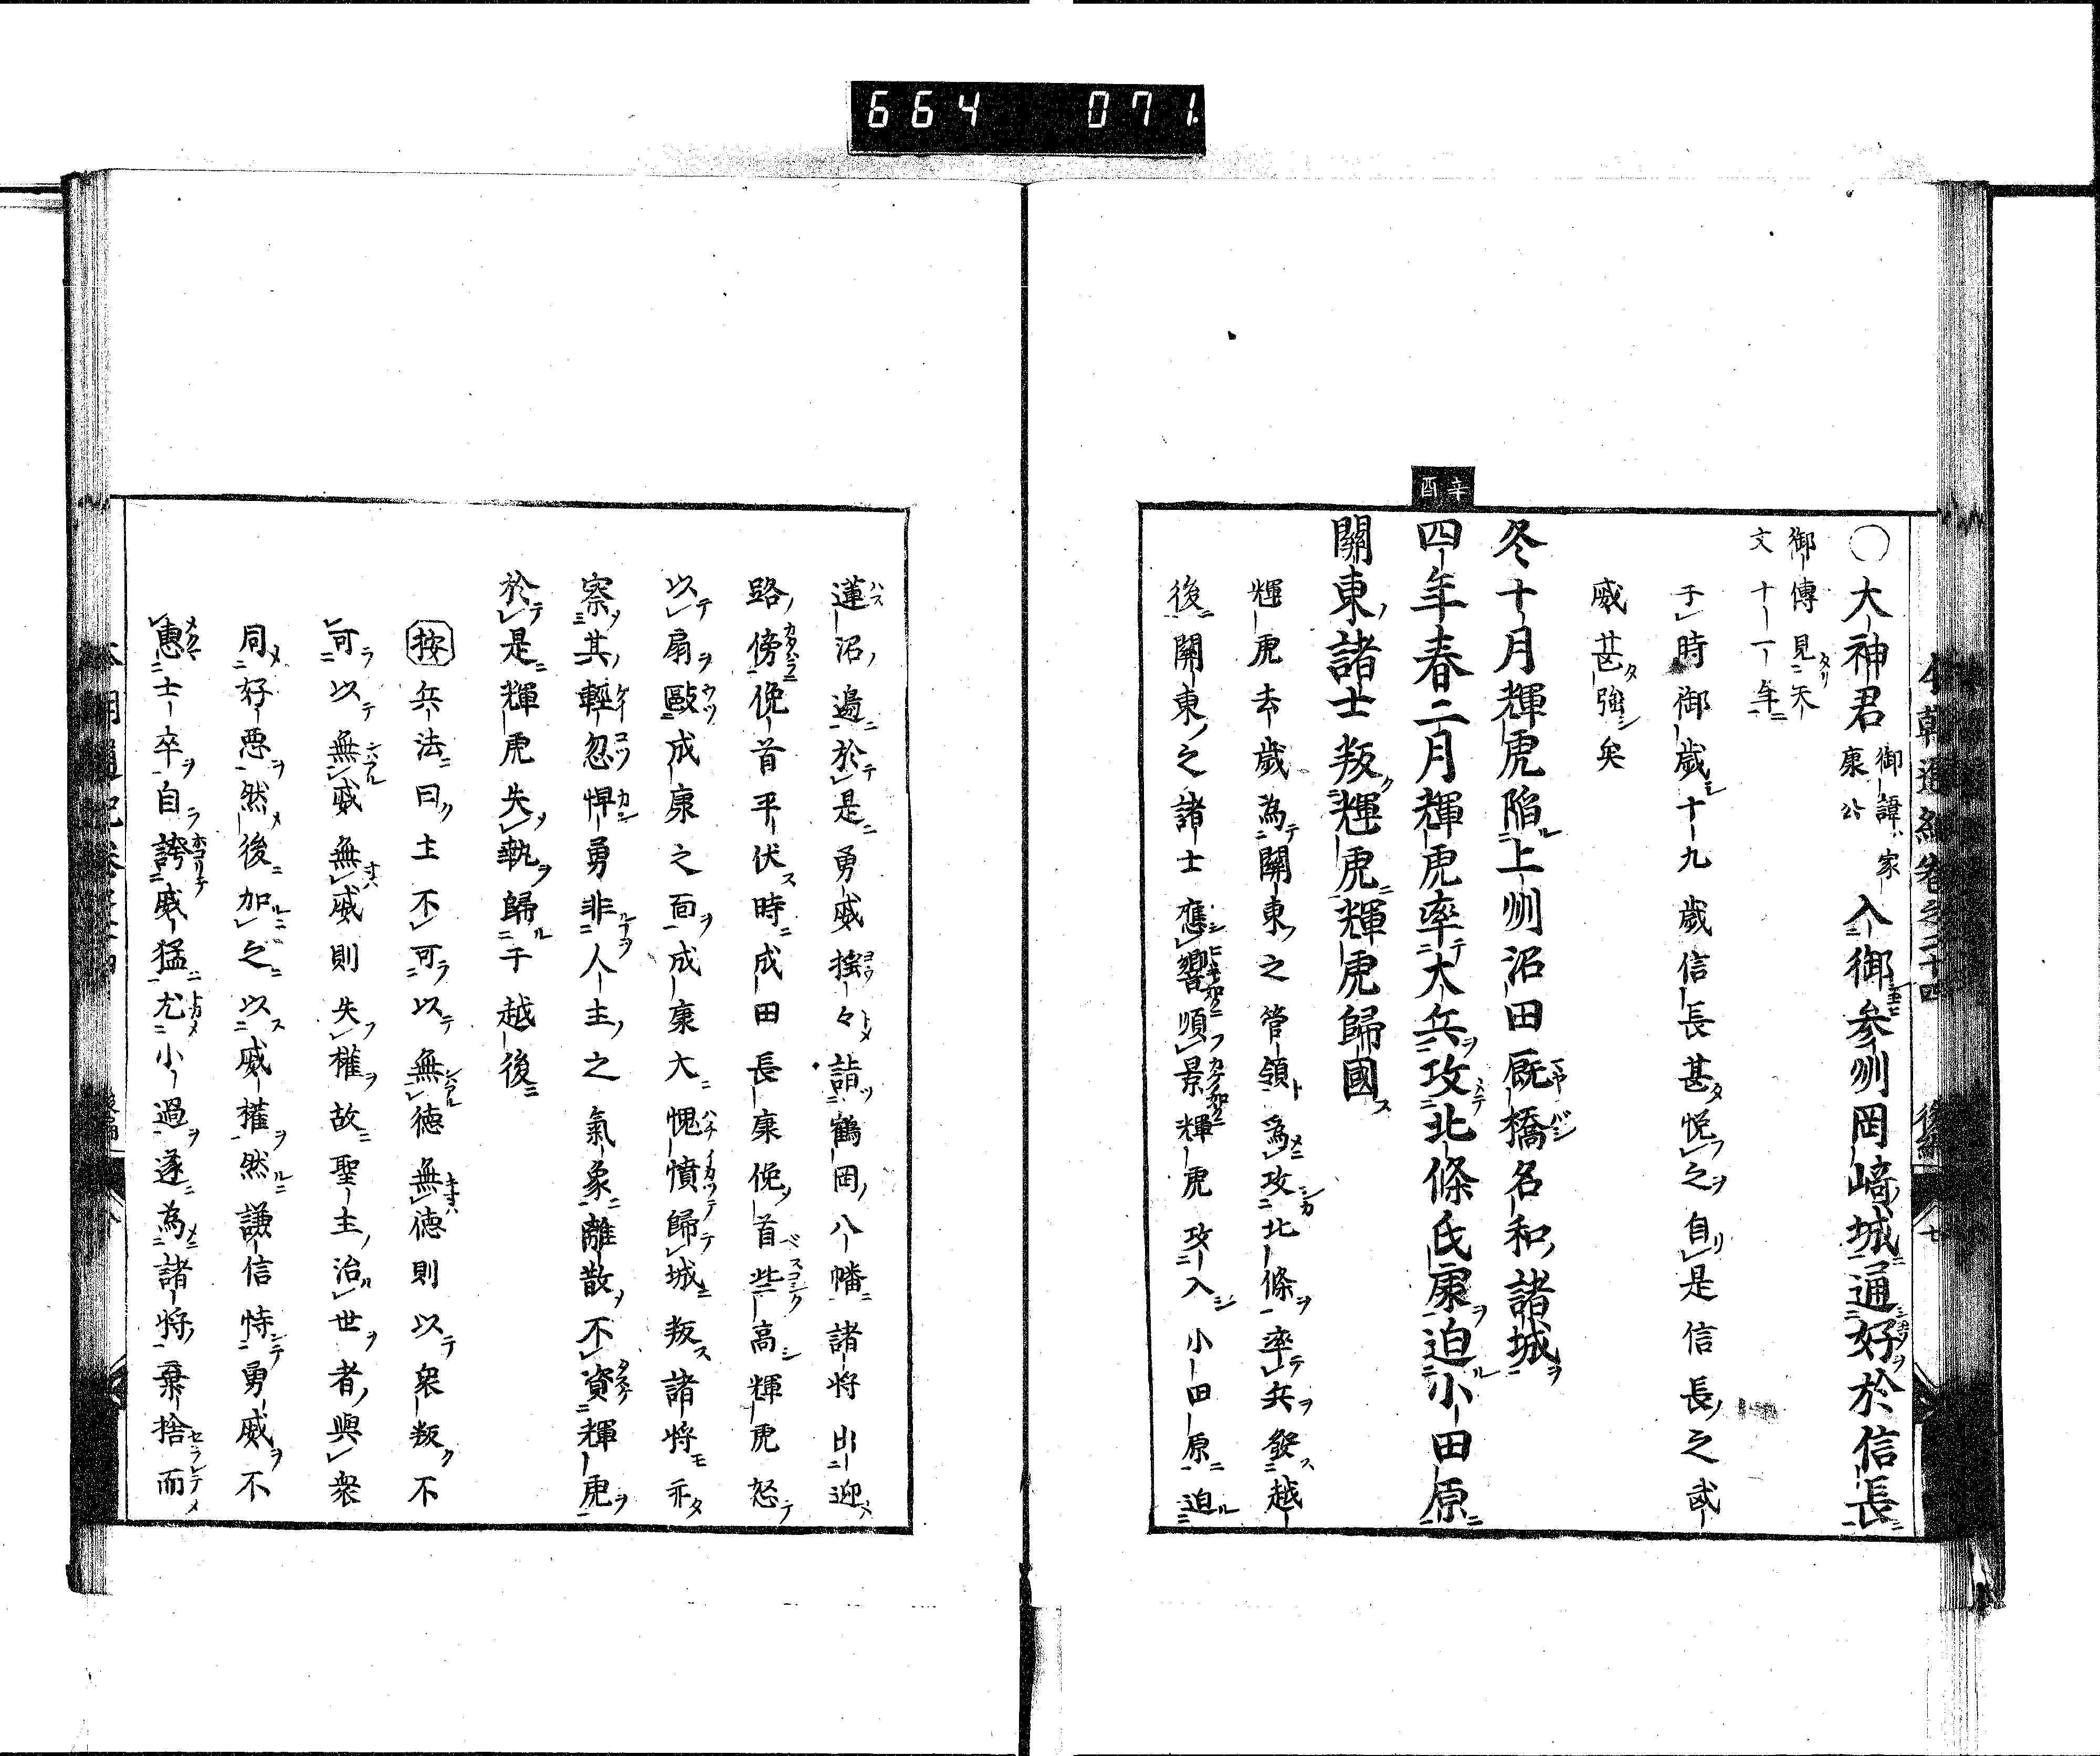 664 071
〇大神君御諱ハ家康公入御参州岡﨑城通好於信長
御傳見天
文十一年
于時御歳十九歳信長甚悦之自是信長之武
威甚強矣
冬十月輝虎陥上州沼田厩橋名和諸城
辛酉
四年春二月輝虎率大兵攻北條氏康迫小田原
關東諸士叛輝虎輝虎歸國
輝虎去歳為關東之管領為攻北條率兵發越
後關東之諸士應響順景輝虎攻入小田原迫
蓮沼邊於是勇威揺々詣鶴岡八幡諸将出迎
路傍俛首平伏時成田長康俛首些高輝虎怒
以扇毆成康之面成康大愧憤歸城叛諸将亦
察其輕忽悍勇非人主之氣象離散不資輝虎
於是輝虎失執歸于越後
按兵法曰主不可以無德無德則以衆叛不
可以無威無威則失權故聖主治世者與衆
同好悪然後加之以威權然謙信恃勇威不
惠士卒自誇威猛尤小過遂為諸将棄捨而